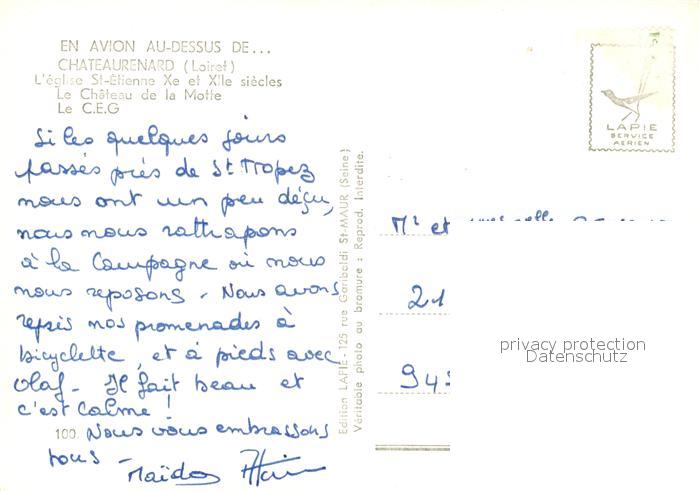 EN AVION AU-DESSUS DE...
CHATEAURENARD (Loiret)
L'église St-Étienne Xe et XIIe siècles
Le Château de la Motte
Le C.E.G
LAPIE
SERVICE
AERIEN
Si les quelques jours
passés près de St Tropez
nous ont un peu déçu,
nous nous rattrapons
à la Campagne où nous
nous reposons. Nous avons
repris nos promenades à
bicyclette, et à pieds avec
Olaf. Il fait beau et
c'est Calme !
100. Nous vous embrassons
tous -
Edition LAPIE - 125 rue Garibaldi St-MAUR (Seine)
Véritable photo au bromure : Reprod. Interdite.
Mr et
21
94
privacy protection
Datenschutz